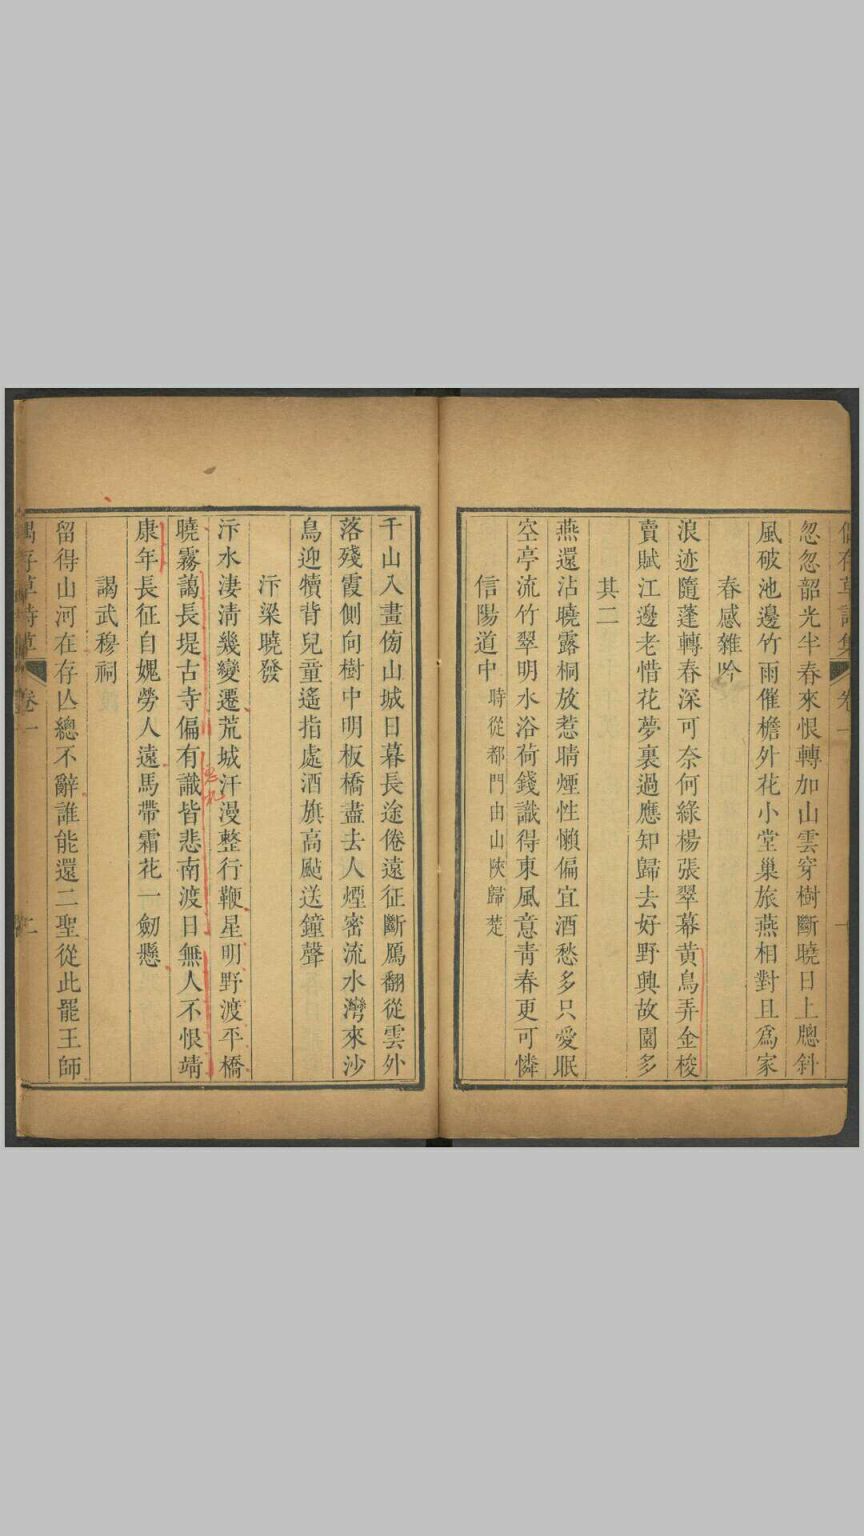 忽忽韶光半春來恨轉加山雲穿樹斷曉日上牕斜
風破池邊竹雨催檐外花小堂巢旅燕相對且爲家
春感雜吟
浪迹隨蓬轉春深可奈何綠楊張翠幕黃鳥弄金梭
賣賦江邊老惜花夢裏過應知歸去好野興故園多
其二
燕還沾曉露桐放惹晴煙性懶偏宜酒愁多只愛眠
空亭流竹翠明水浴荷錢識得東風意青春更可憐
信陽道中 時從都門由山陝歸楚
千山入畫傍山城日暮長途倦遠征斷鴈翻從雲外
落殘霞側向樹中明板橋盡去人煙密流水灣來沙
鳥迎犢背兒童遙指處酒旗高颭送鐘聲
汴梁曉發
汴水淒清幾變遷荒城汗漫整行鞭星明野渡平橋
曉霧藹長堤古寺偏有識皆悲南渡日無人不恨靖
康年長征自媿勞人遠馬帶霜花一劒懸
謁武穆祠
留得山河在存亾總不辭誰能還二聖從此罷王師
偶存草詩草 卷一 二